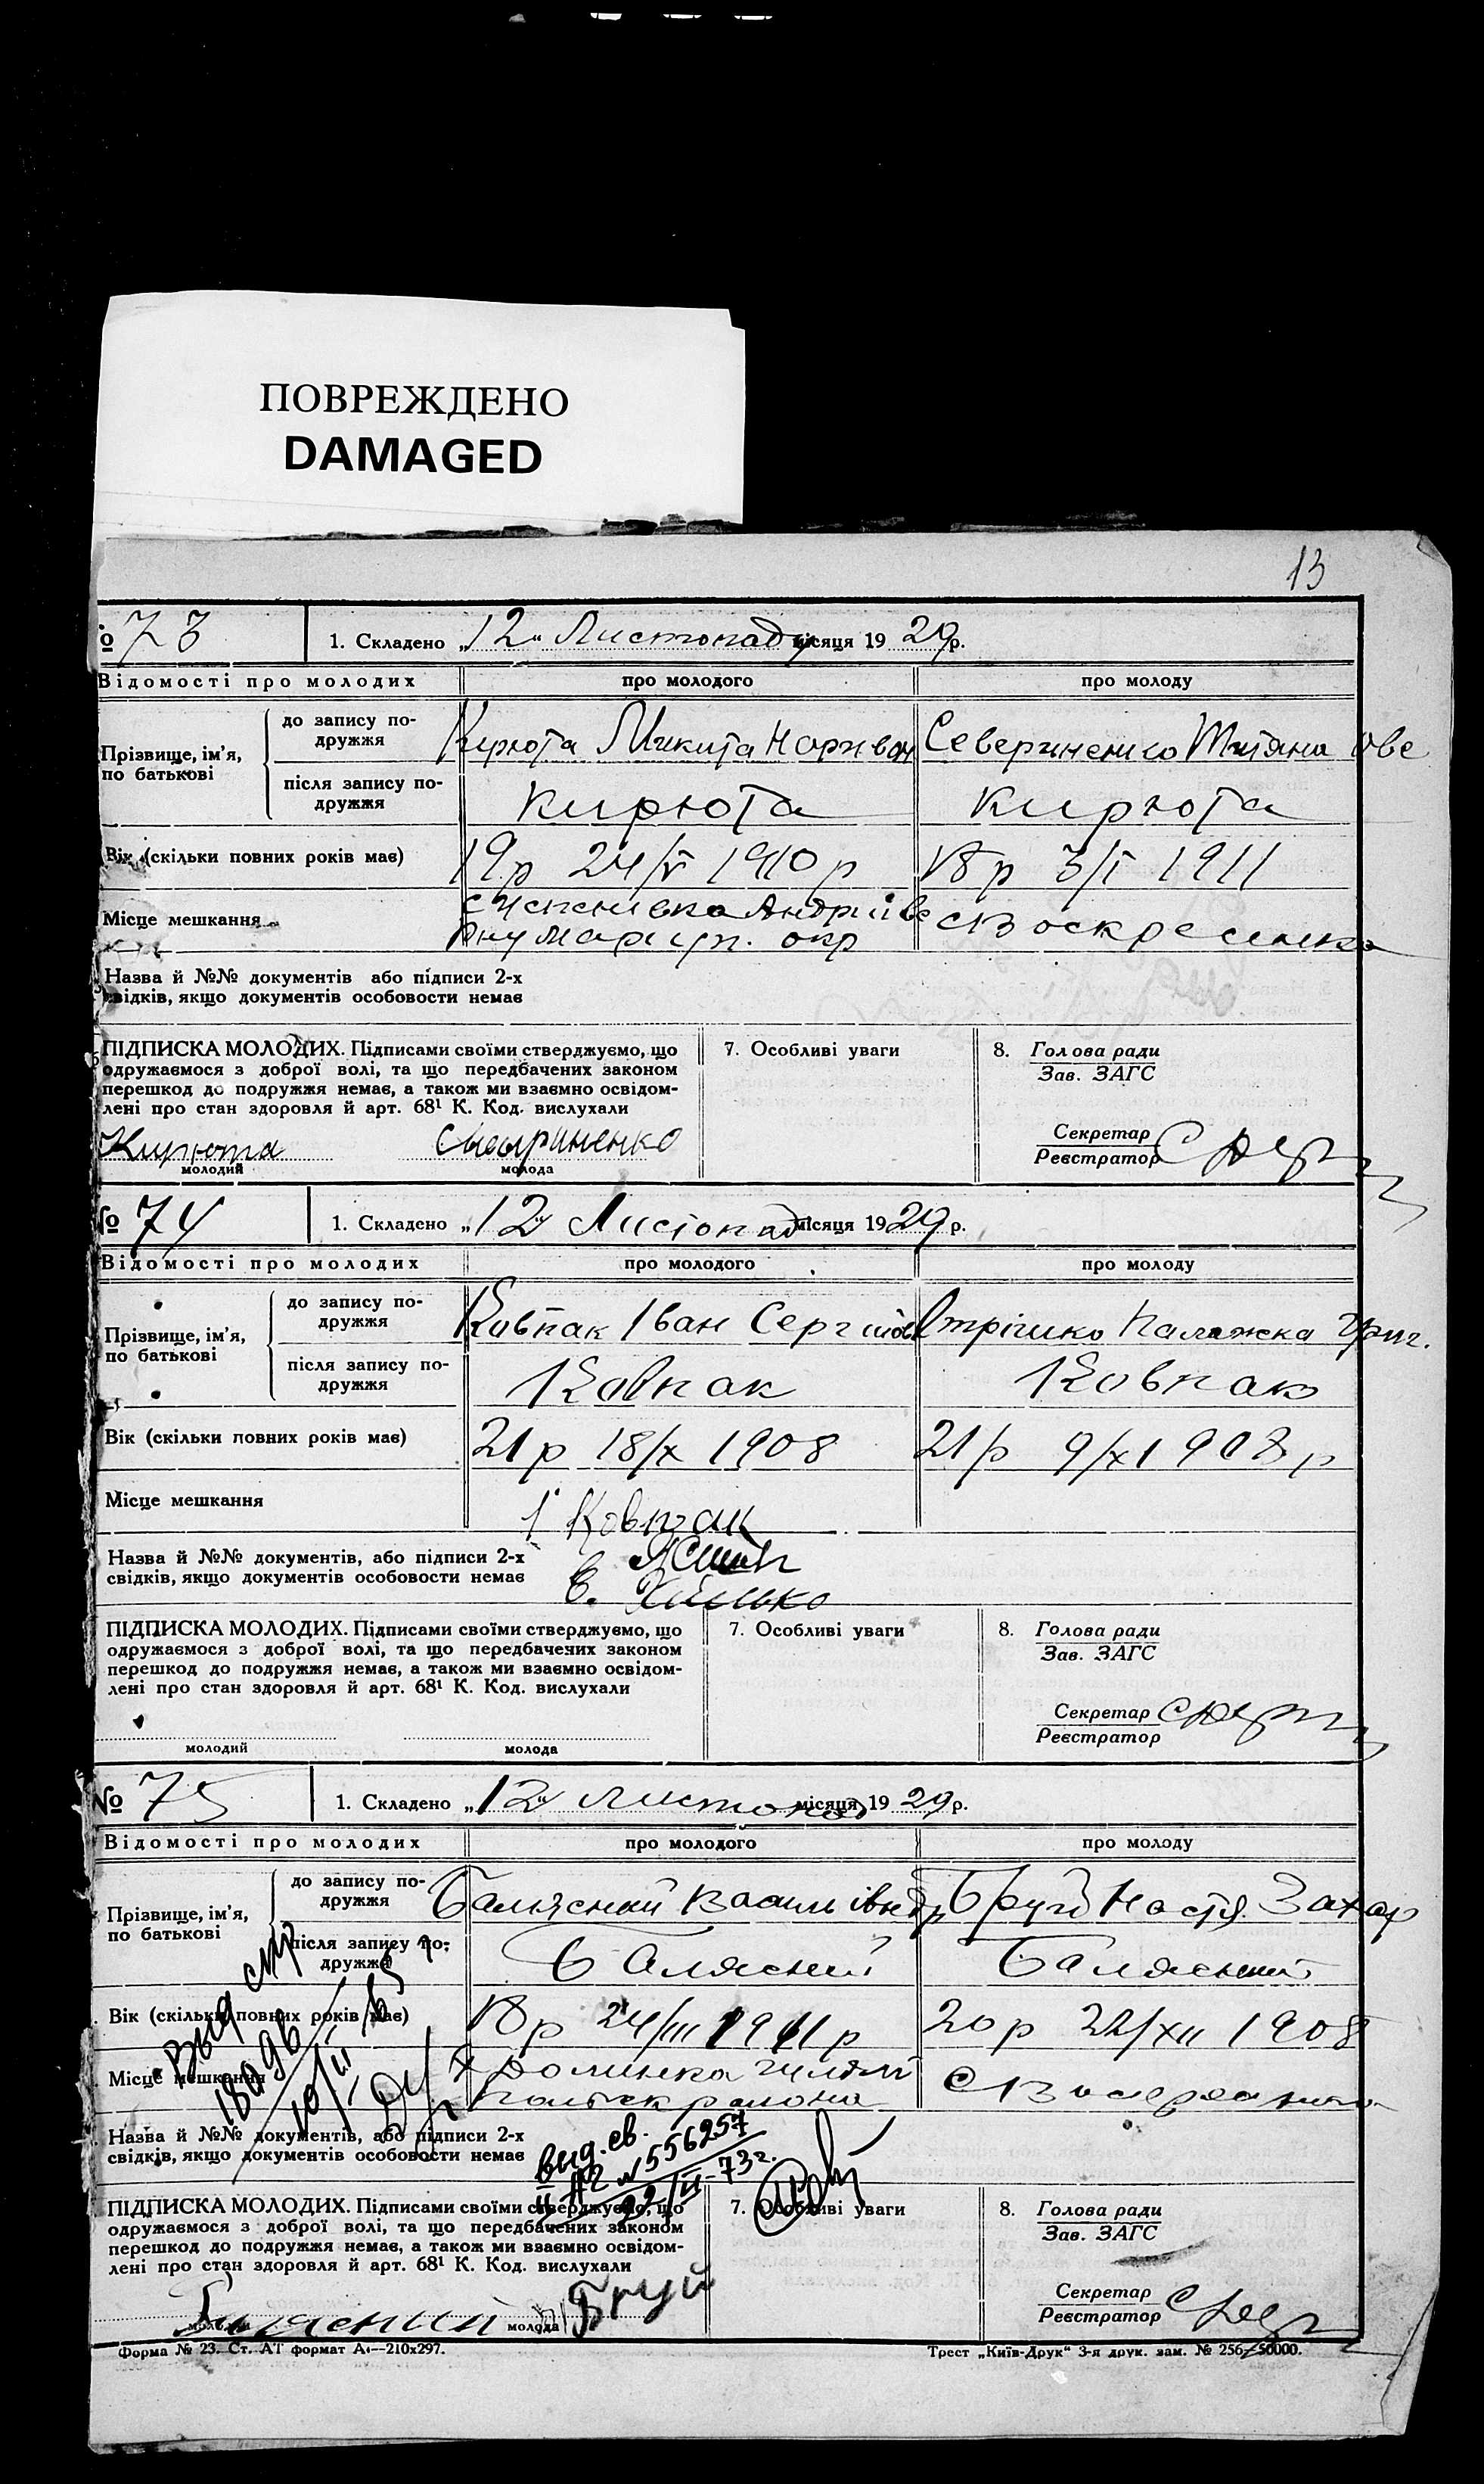 ПОВРЕЖДЕНО
DAMAGED
13
№ 73 1. Складено „12“ Листопаду місяця 1929р.
Відомості про молодих про молодого про молоду
Прізвище, ім’я, по батькові
до запису по-дружжя Кирюта Микита Севериненко Титяна
після запису по-дружжя Кирюта Кирюта
Вік (скільки повних років має) 19р 24/V 1910р 18р 3/I 1911
Місце мешкання
окр
Назва й №№ документів або підписи 2-х
свідків, якщо документів особовости немає
ПІДПИСКА МОЛОДИХ. Підписами своїми стверджуємо, що
одружаємося з доброї волі, та що передбачених законом
перешкод до подружжя немає, а також ми взаємно освідом-
лені про стан здоровля й арт. 68¹ К. Код. вислухали
Кирюта
молодий молода
7. Особливі уваги
8. Голова ради
Зав. ЗАГС
Секретар
Реєстратор
№ 74 1. Складено „12“ Листопад місяця 1929р.
Відомості про молодих про молодого про молоду
Прізвище, ім’я, по батькові
до запису по-дружжя Ковпак Іван Сергійов Палажка Григ.
після запису по-дружжя Ковпак Ковпак
Вік (скільки повних років має) 21р 18/X 1908 21р 9/X 1908р
Місце мешкання
Ковпак
Назва й №№ документів, або підписи 2-х
свідків, якщо документів особовости немає
ПІДПИСКА МОЛОДИХ. Підписами своїми стверджуємо, що
одружаємося з доброї волі, та що передбачених законом
перешкод до подружжя немає, а також ми взаємно освідом-
лені про стан здоровля й арт. 68¹ К. Код. вислухали
молодий молода
7. Особливі уваги
8. Голова ради
Зав. ЗАГС
Секретар
Реєстратор
№ 75 1. Складено „12“ Листопад місяця 1929р.
Відомості про молодих про молодого про молоду
Прізвище, ім’я, по батькові
до запису по-дружжя Балясний Василь Бруй Настя Захар
після запису по-дружжя Балясний Балясний
Вік (скільки повних років має) 18р 24/III 1911р 20р 22/XII 1908
Місце мешкання
Назва й №№ документів, або підписи 2-х
свідків, якщо документів особовости немає
выд. св.
II № 556257
22/II-73г.
ПІДПИСКА МОЛОДИХ. Підписами своїми стверджуємо, що
одружаємося з доброї волі, та що передбачених законом
перешкод до подружжя немає, а також ми взаємно освідом-
лені про стан здоровля й арт. 68¹ К. Код. вислухали
Балясний Бруй
молодий молода
7. Особливі уваги
8. Голова ради
Зав. ЗАГС
Секретар
Реєстратор
Форма № 23. Ст. АТ формат А₄—210х297.
Трест „Київ-Друк“ 3-я друк. зам. № 256—50000.